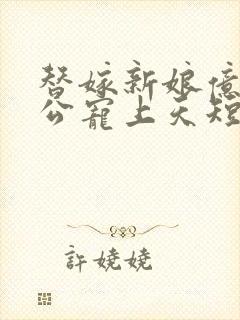 替嫁新娘億
公寵上天短
許嬈嬈